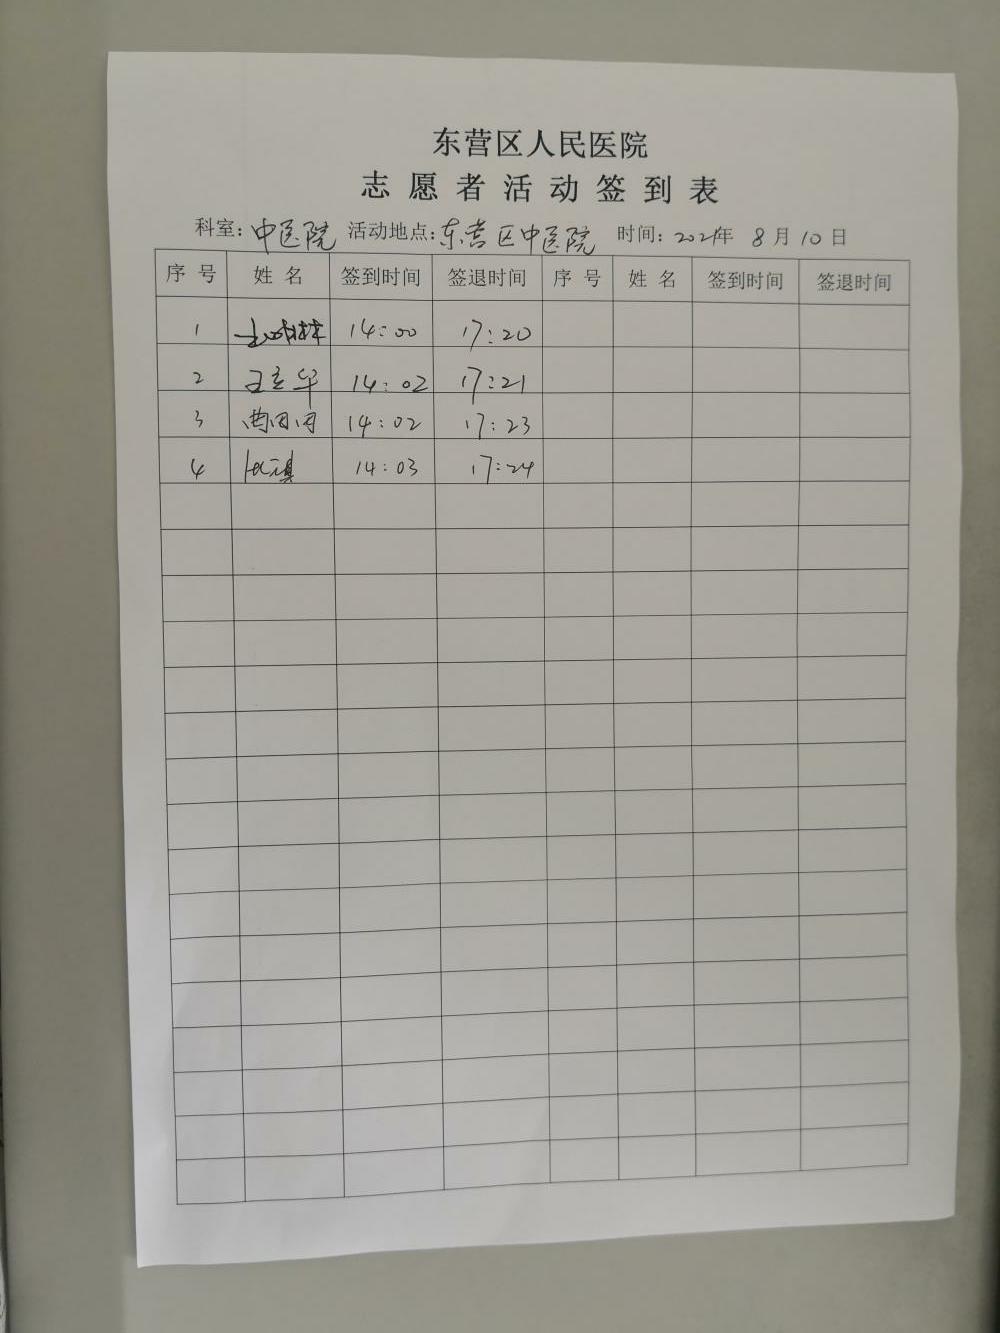 东营区人民医院
志愿者活动签到表
科室：中医院 活动地点：东营区中医院 时间：2021年 8月10日
序号 姓名 签到时间 签退时间 序号 姓名 签到时间 签退时间
1 14:00 17:20
2 14:02 17:21
3 14:02 17:23
4 14:03 17:24